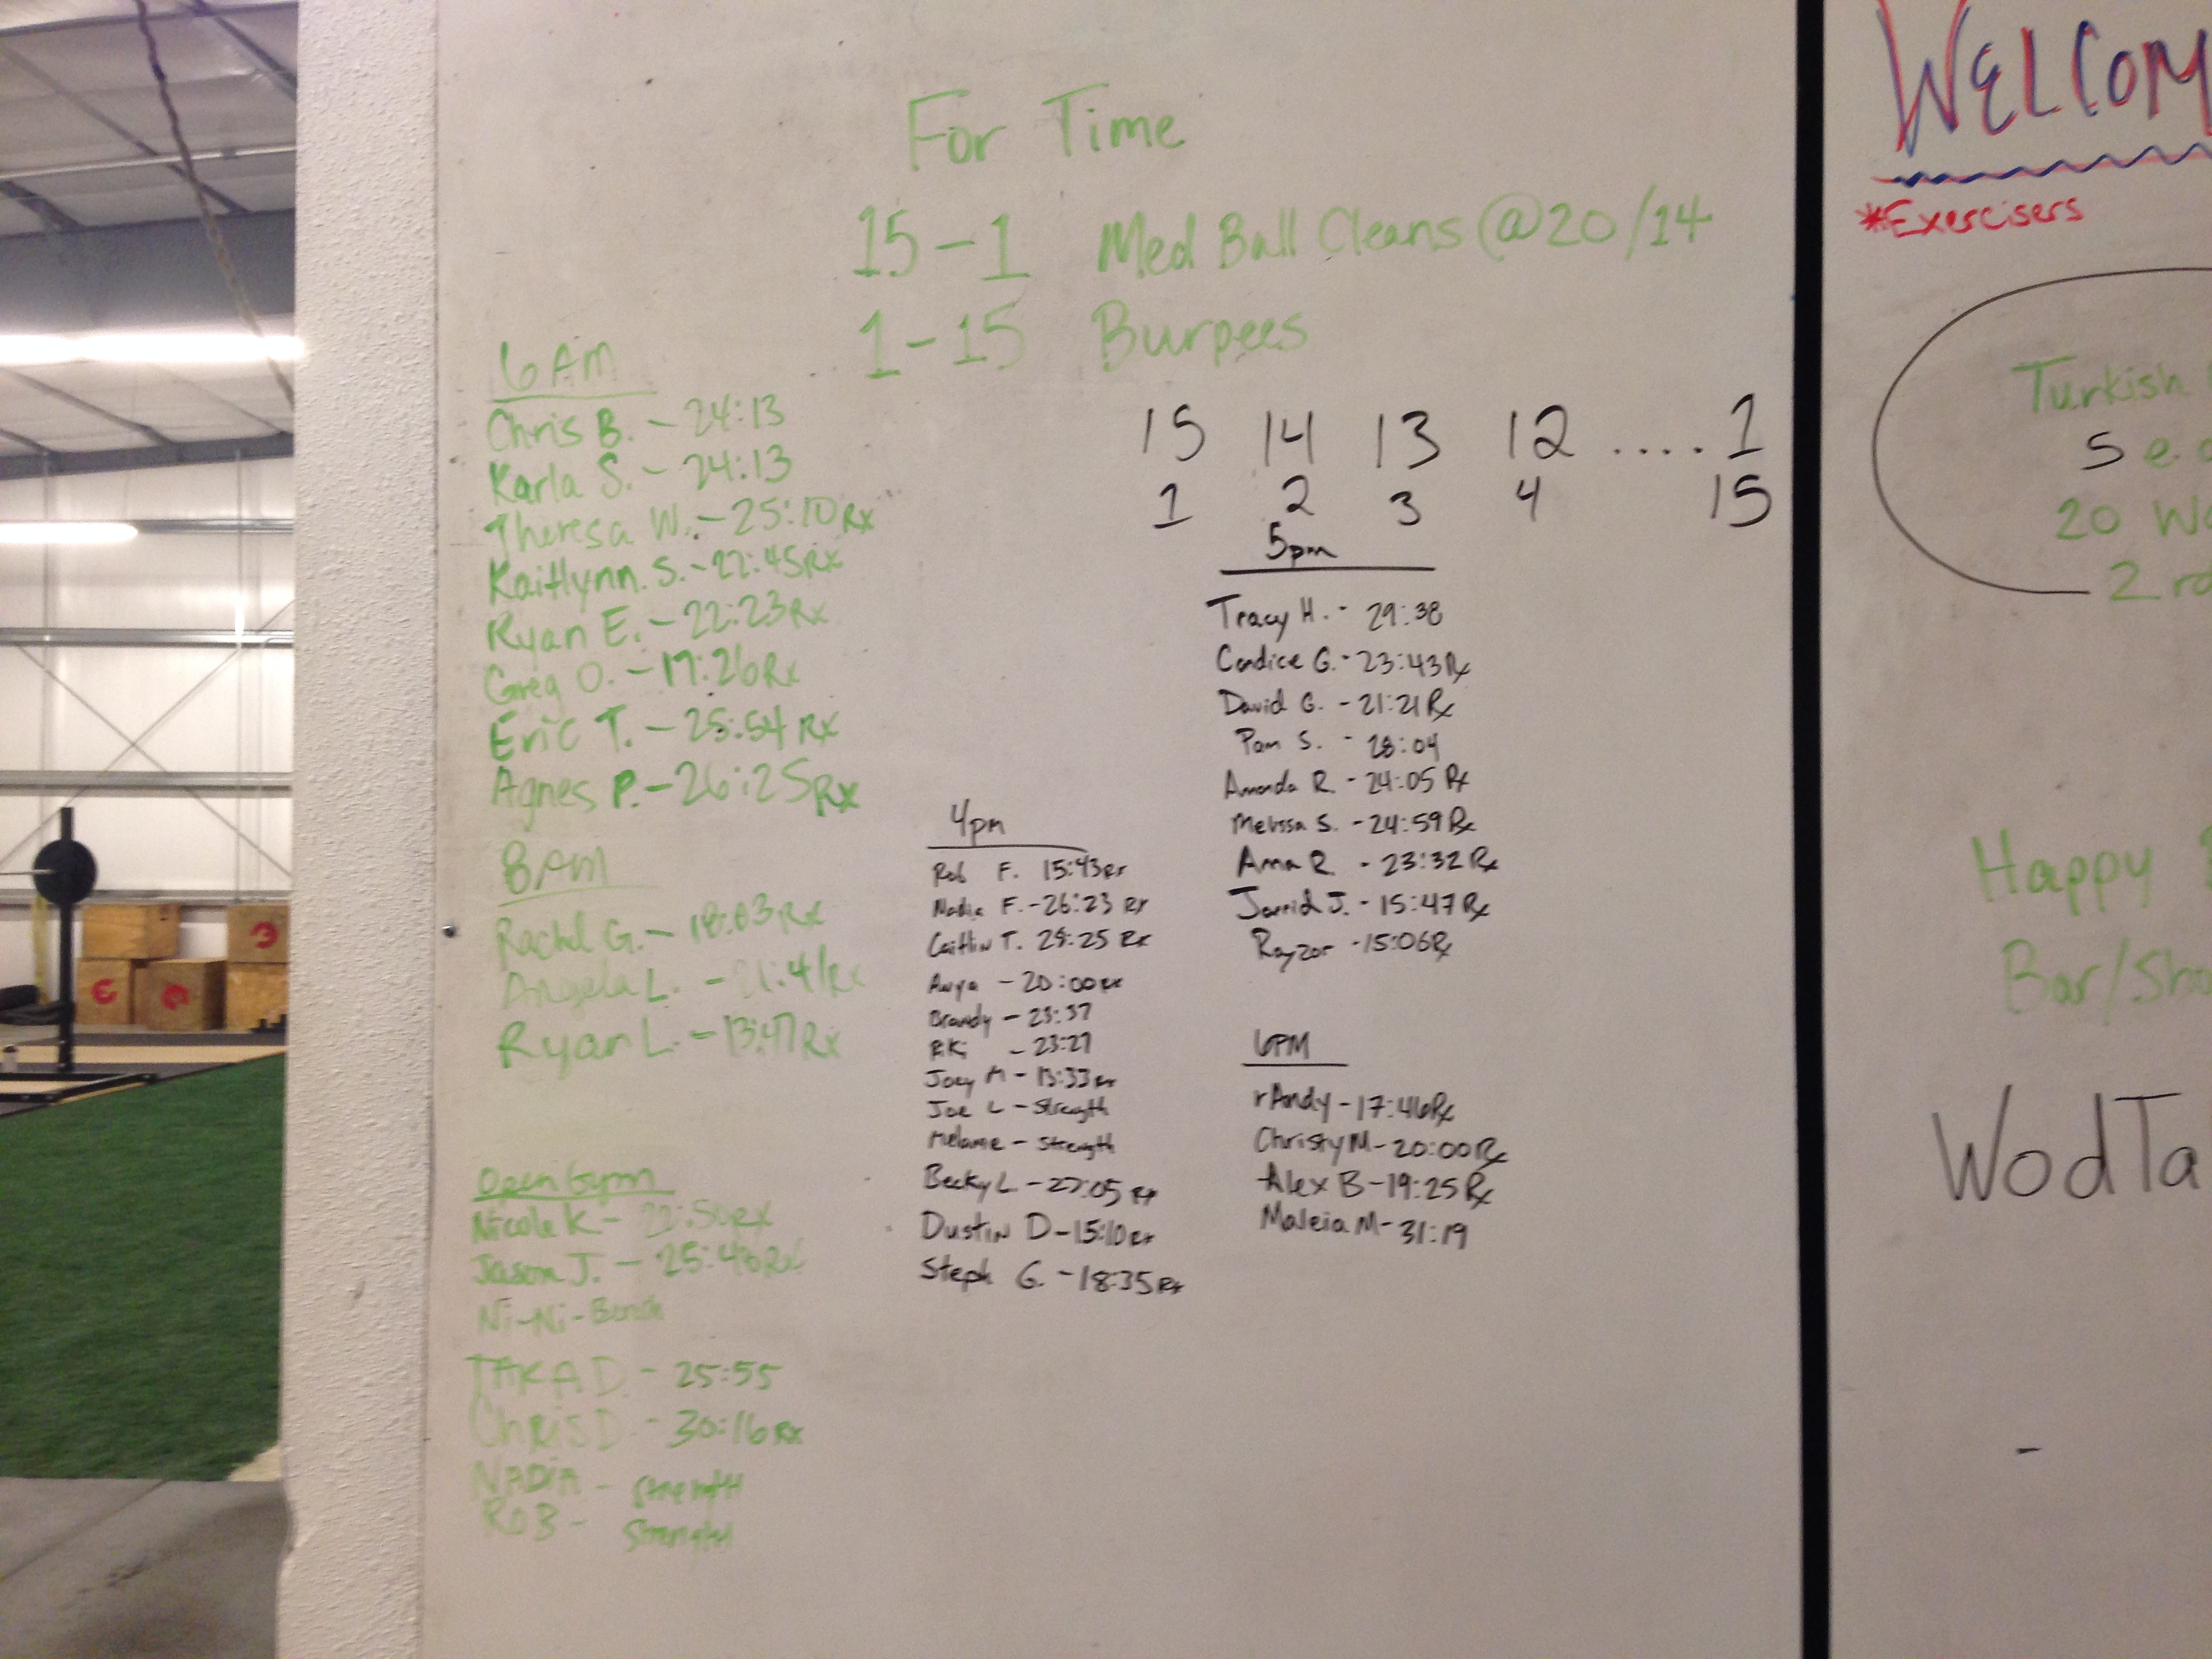 For Time
15-1 Med Ball Cleans @ 20/14
1-15 Burpees
15 14 13 12 .... 1
1 2 3 4 15
6AM
Chris B. - 24:13
Karla S. - 24:13
Theresa W. - 25:10 Rx
Kaitlynn. S. - 22:45 Rx
Ryan E. - 22:23 Rx
Greg O. - 17:26 Rx
Eric T. - 25:54 Rx
Agnes P. - 26:25 Rx
8AM
Rachel G. - 18:03 Rx
Angela L. - 21:41 Rx
Ryan L. - 13:47 Rx
Open Gym
Nicole K - 22:50 Rx
Jason J. - 25:43 Rx
Ni-Ni-Bench
TAKA D. - 25:55
Chris D - 30:16 Rx
NADIA - Strength
ROB - Strength
4pm
Rob F. 15:43 Rx
Nadia F. - 26:23 Rx
Caitlin T. 28:25 Rx
Anya - 20:00 Rx
Brandy - 23:37
Riki - 23:27
Joey M - 13:33 Rx
Joe L - Strength
Melanie - Strength
Becky L. - 27:05 Rx
Dustin D - 15:10 Rx
Steph G. - 18:35 Rx
5pm
Tracy H. - 29:38
Candice G. - 23:43 Rx
David G. - 21:21 Rx
Pam S. - 28:04
Amanda R. - 24:05 Rx
Melissa S. - 24:59 Rx
Anna R. - 23:32 Rx
Jarrid J. - 15:47 Rx
Rayzor - 15:06 Rx
6PM
rAndy - 17:46 Rx
Christy M - 20:00 Rx
Alex B - 19:25 Rx
Maleia M - 31:19
WELCOM
*Exercisers
Turkish
5 e.
20
2 rd
Happy
Bar/Sho
WodTa